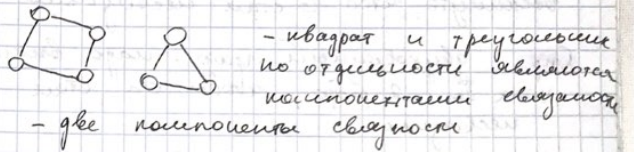 - квадрат и треугольник
по отдельности являются
компонентами связности
- две компоненты связности